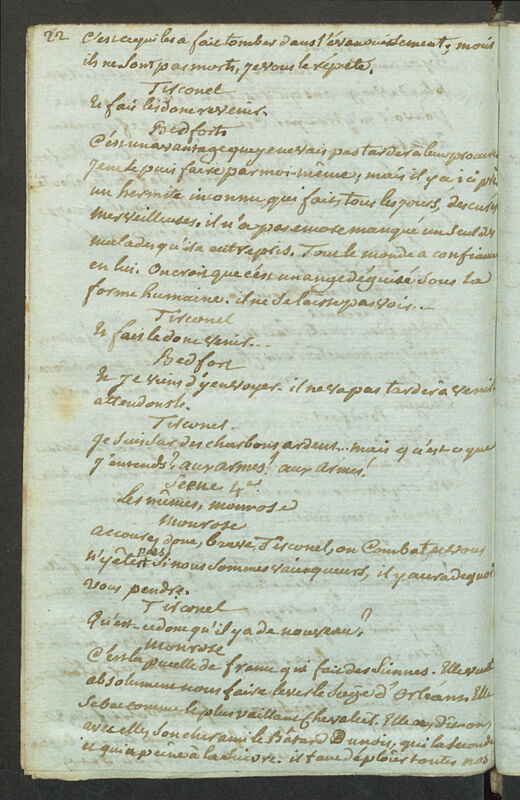 22 C'est ce qui les a fait tomber dans l'évanouissement, mais
ils ne sont pas morts, je vous le répète.
Tirconel
Et fais les donc revenir.
Bedfort
C'est un avantage que je ne vais pas tarder à leur procurer
je ne le puis faire par moi-même, mais il y a ici près
un hermite inconnu qui fait, tous les jours, des cures
merveilleuses. il n'a pas encore manqué un seul des
malades qu'il a entrepris. Tout le monde a confiance
en lui. On croit que c'est un ange déguisé sous la
forme humaine. il ne se laisse pas voir...
Tirconel
Et fais le donc venir...
Bedfort
Et je viens d'y envoyer. il ne va pas tarder à venir
attendons le.
Tirconel.
Je suis sur des charbons ardens... mais qu'est ce que
j'entends? aux armes! aux armes!
Scene 4e
Les mêmes, monrose
monrose
accourez donc, brave Tirconel, on Combat, et vous
n'y êtes pas! si nous sommes vainqueurs, il y aura de quoi
vous pendre.
Tirconel
Qu'est-ce donc qu'il y a de nouveau?
monrose
C'est la pucelle de france qui fait des siennes. Elle veut
absolument nous faire lever le siège d'Orléans. Elle
se bat comme le plus vaillant Chevalier. Elle a, dit-on,
avec elle, son cher ami le Bâtard Dunois, qui la seconde
et qui a peine à la suivre. il faut déploïer toutes nos